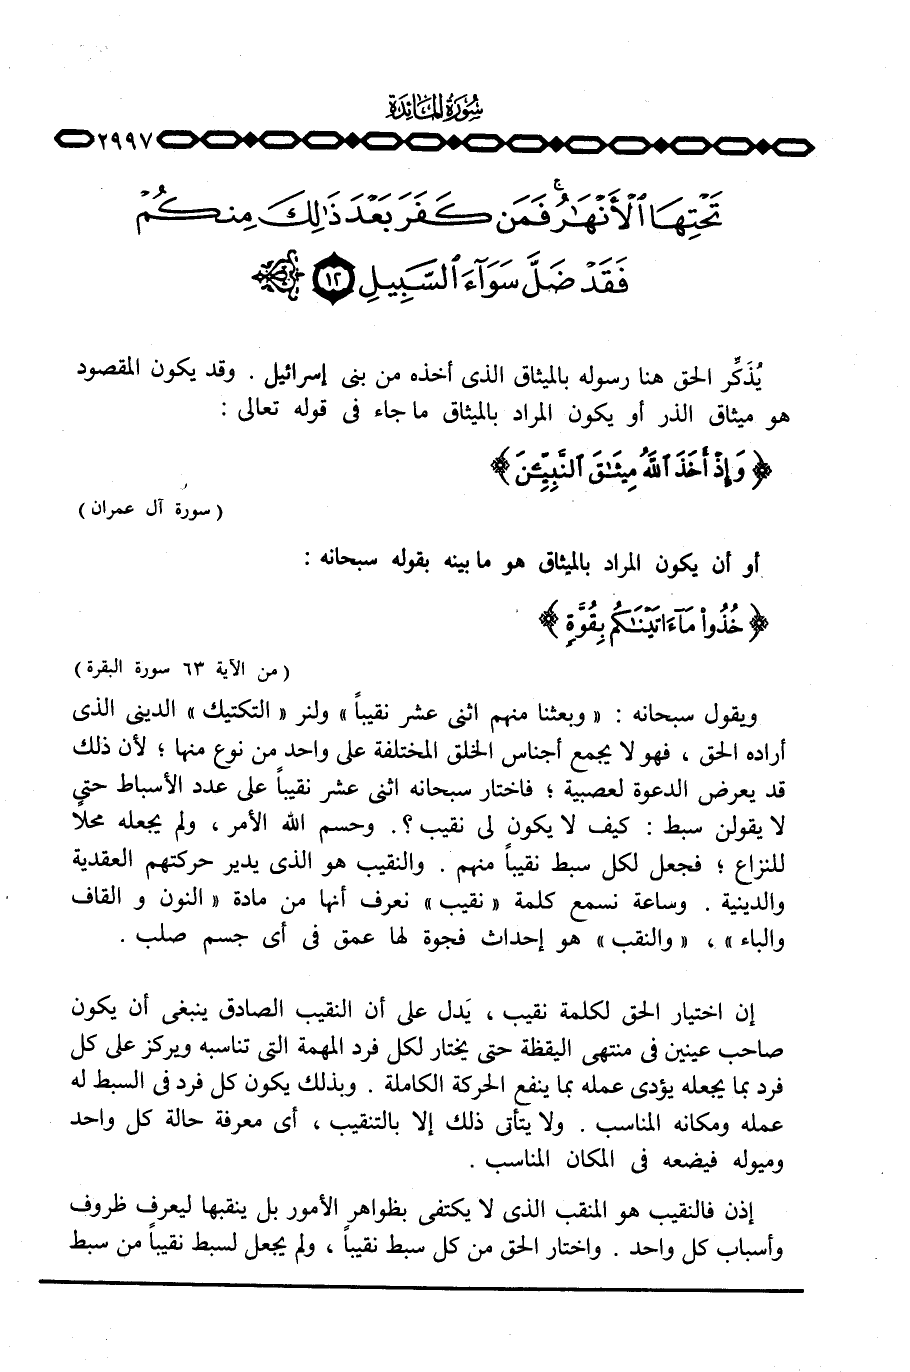 سُورَةُ المَائدَة
٢٩٩٧
تَحْتِهَا ٱلْأَنْهَٰرُ ۚ فَمَن كَفَرَ بَعْدَ ذَٰلِكَ مِنكُمْ
فَقَدْ ضَلَّ سَوَآءَ ٱلسَّبِيلِ ١٢
يُذَكِّر الحق هنا رسوله بالميثاق الذى أخذه من بنى إسرائيل . وقد يكون المقصود
هو ميثاق الذر أو يكون المراد بالميثاق ما جاء فى قوله تعالى :
﴿ وَإِذْ أَخَذَ ٱللَّهُ مِيثَٰقَ ٱلنَّبِيِّـۧنَ ﴾
( سورة آل عمران )
أو أن يكون المراد بالميثاق هو ما بينه بقوله سبحانه :
﴿ خُذُوا۟ مَآ ءَاتَيْنَٰكُم بِقُوَّةٍ ﴾
( من الآية ٦٣ سورة البقرة )
ويقول سبحانه : « وبعثنا منهم اثنى عشر نقيباً » ولنر « التكتيك » الدينى الذى
أراده الحق ، فهو لا يجمع أجناس الخلق المختلفة على واحد من نوع منها ؛ لأن ذلك
قد يعرض الدعوة لعصبية ؛ فاختار سبحانه اثنى عشر نقيباً على عدد الأسباط حتى
لا يقولن سبط : كيف لا يكون لى نقيب ؟. وحسم الله الأمر ، ولم يجعله محلاً
للنزاع ؛ فجعل لكل سبط نقيباً منهم . والنقيب هو الذى يدير حركتهم العقدية
والدينية . وساعة نسمع كلمة « نقيب » نعرف أنها من مادة « النون و القاف
والباء » ، « والنقب » هو إحداث فجوة لها عمق فى أى جسم صلب .
إن اختيار الحق لكلمة نقيب ، يَدل على أن النقيب الصادق ينبغى أن يكون
صاحب عينين فى منتهى اليقظة حتى يختار لكل فرد المهمة التى تناسبه ويركز على كل
فرد بما يجعله يؤدى عمله بما ينفع الحركة الكاملة . وبذلك يكون كل فرد فى السبط له
عمله ومكانه المناسب . ولا يتأتى ذلك إلا بالتنقيب ، أى معرفة حالة كل واحد
وميوله فيضعه فى المكان المناسب .
إذن فالنقيب هو المنقب الذى لا يكتفى بظواهر الأمور بل ينقبها ليعرف ظروف
وأسباب كل واحد . واختار الحق من كل سبط نقيباً ، ولم يجعل لسبط نقيباً من سبط